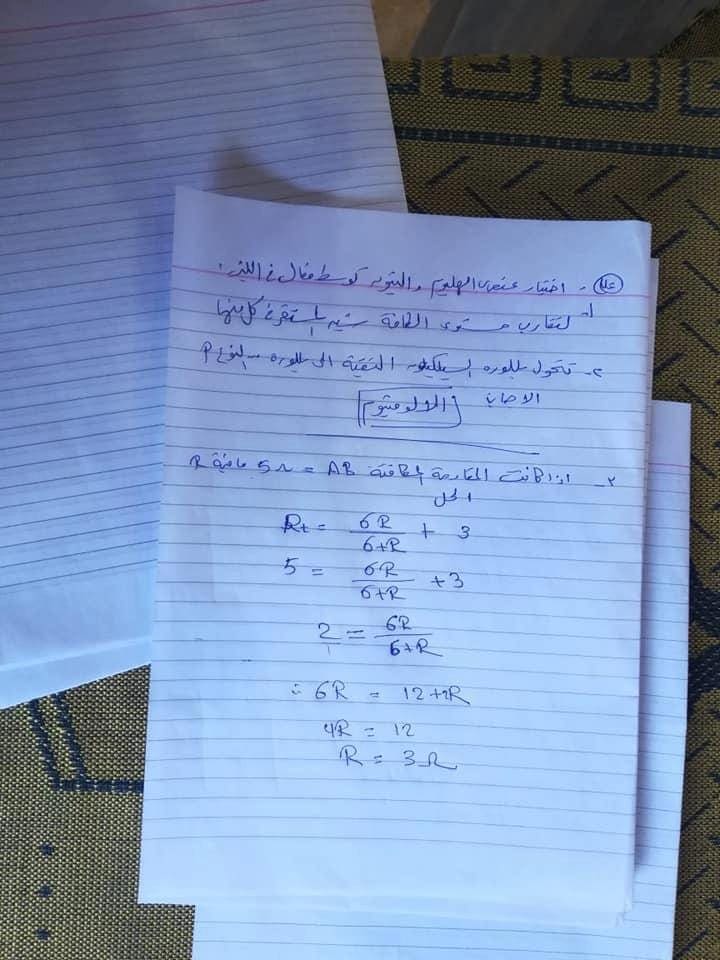 علل - اختيار عنصرى الهليوم والنيون كوسط فعال فى الليزر.
١- لتقارب مستوى الطاقة شبه المستقرة فى كل منهما
٢- تتحول بللوره السيليكون النقية الى بللوره من النوع P
الاجابة الالومنيوم
٢- اذا كانت المقاومة المكافئة AB = 5Ω ما قيمة R
الحل
Rt = 6R/6+R + 3
5 = 6R/6+R + 3
2/1 = 6R/6+R
∴ 6R = 12+2R
4R = 12
R = 3Ω